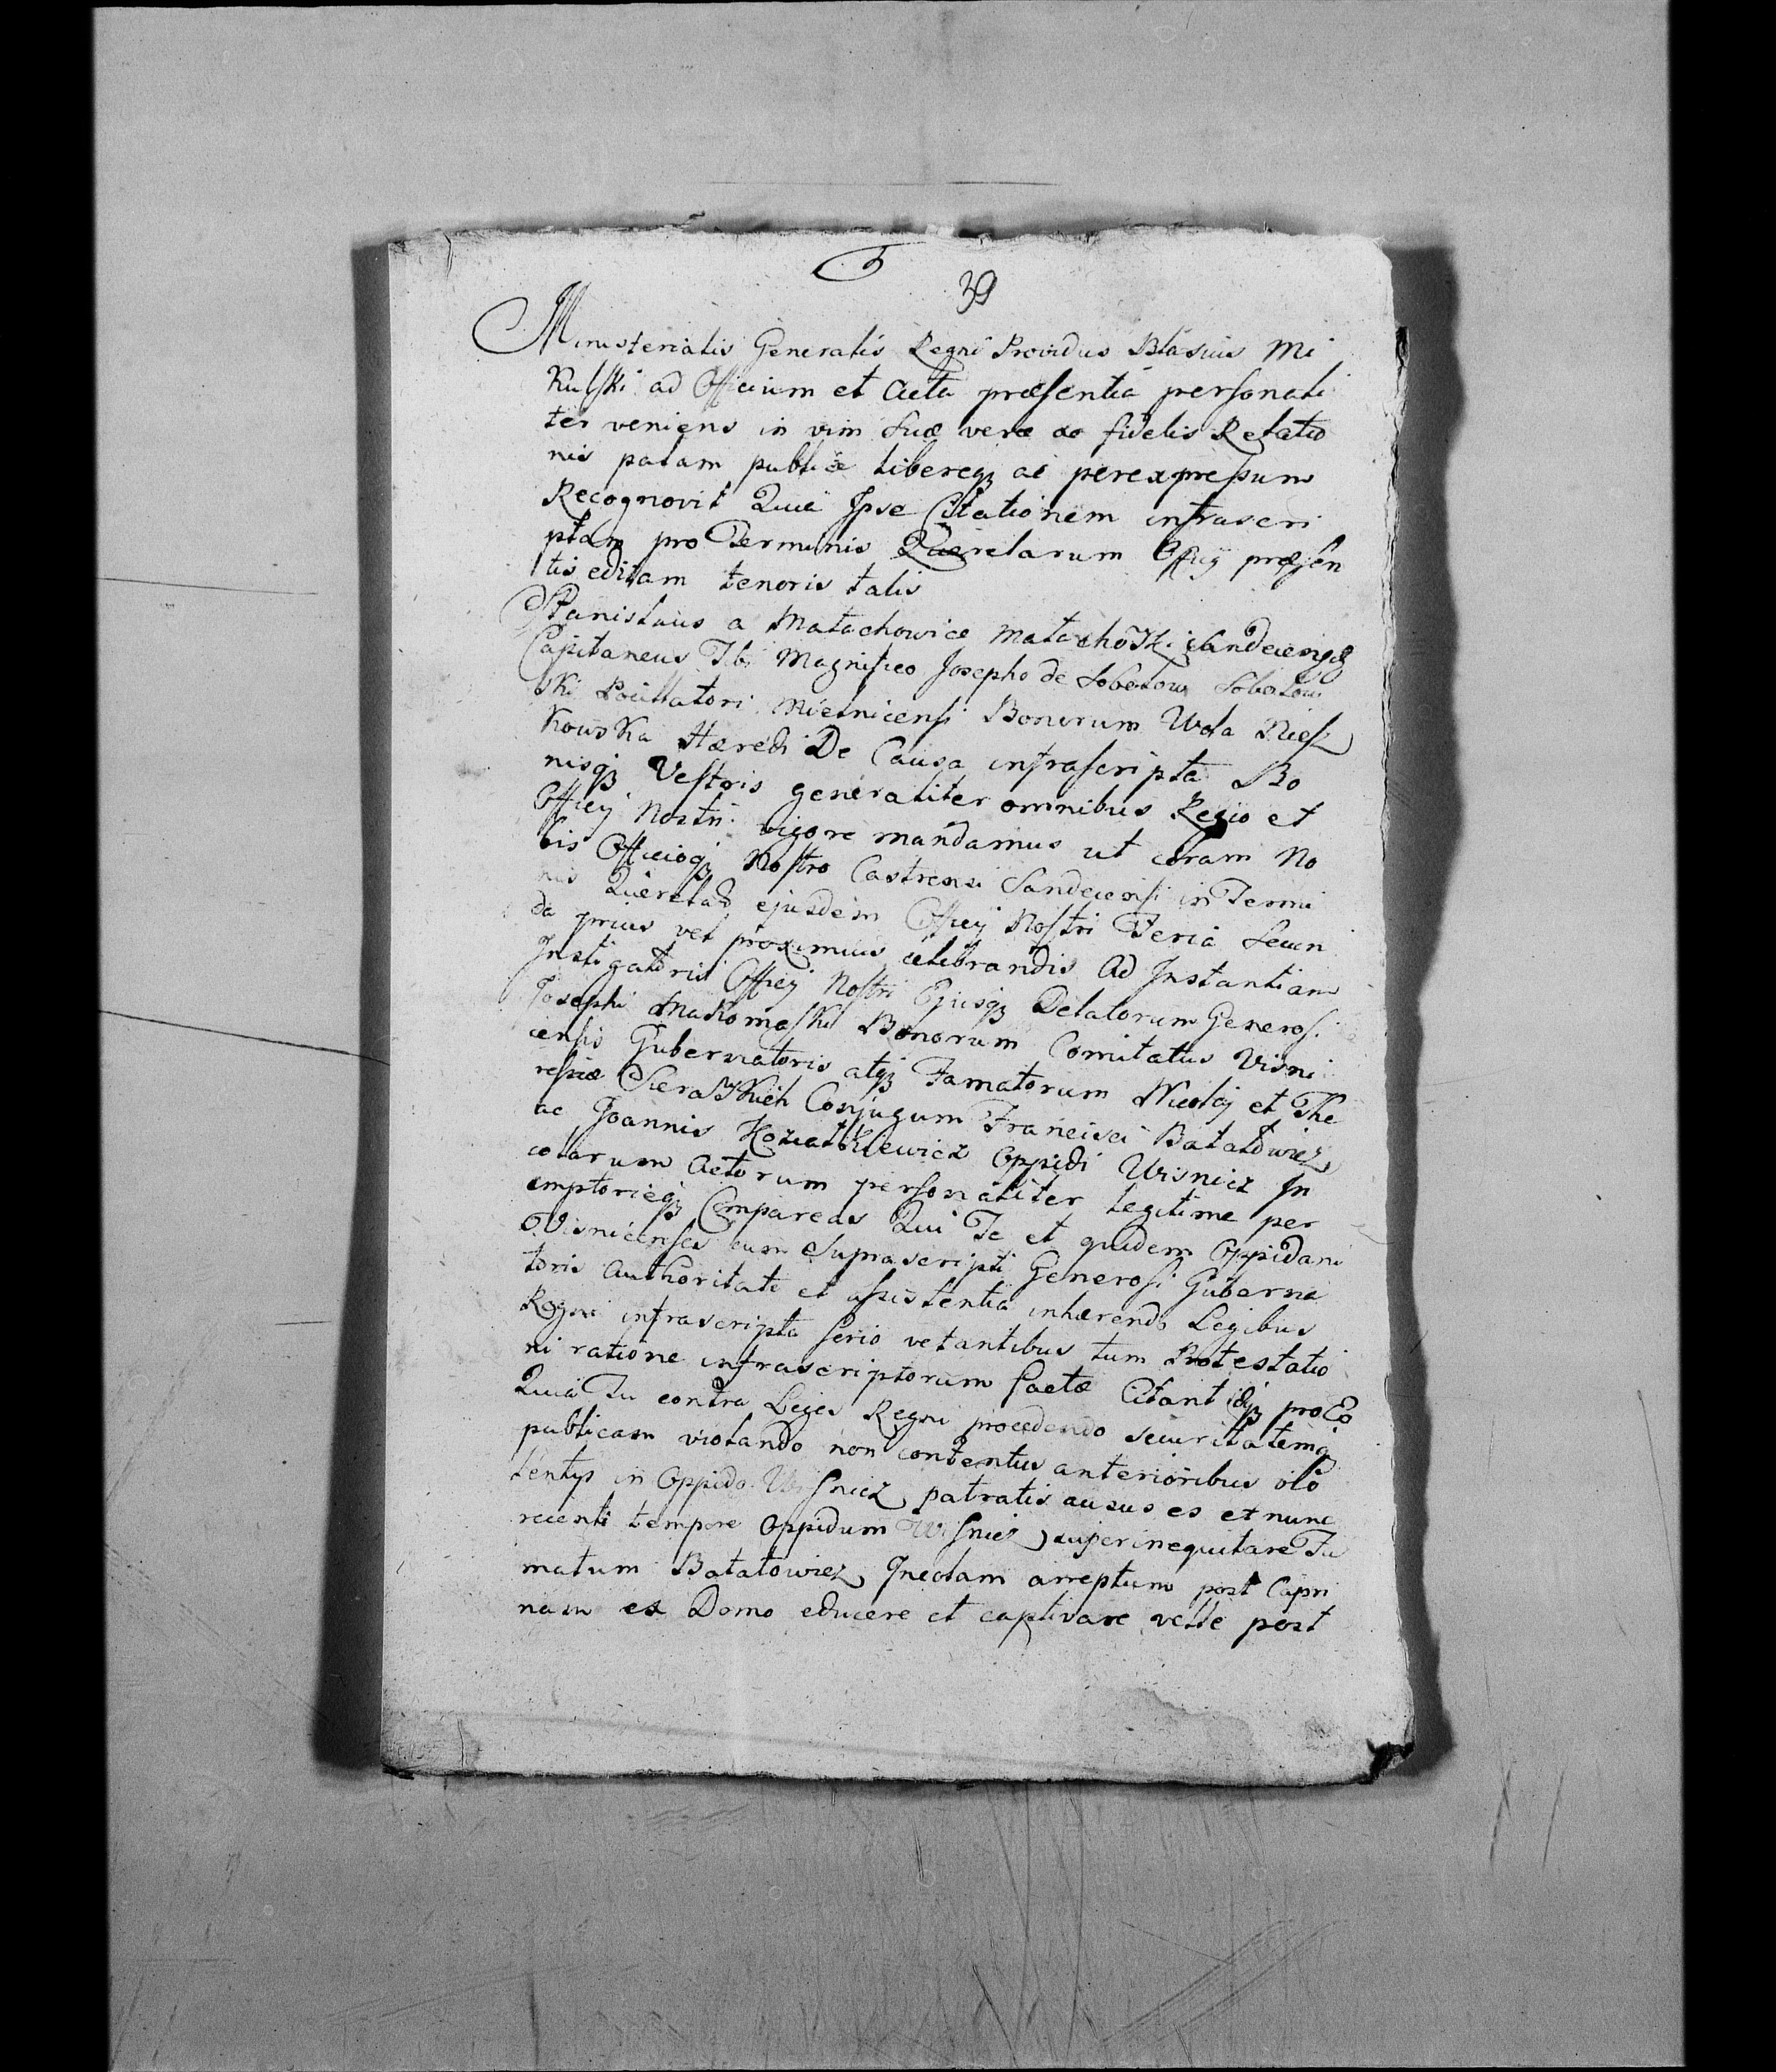 39
Ministerialis Generalis Regni Providus Blasius Mi
kulski ad Officium et Acta præsentia personali
ter veniens in vim suæ veræ ac fidelis Relatio
nis palam publice libereq3 ac per expressum
Recognovit Quia Ipse Citationem infrascri
ptam pro Terminis Querelarum Officij præsen
tis editam tenoris talis
Stanislaus a Małachowice Małachoski Sandecensis
Capitaneus Tibi Magnifico Josepho de Sobolow Sobolow
ski Pocillatori Mielnicensi Bonorum Wola Niesz
kowska Hæredi De Causa infrascripta Bo
nisq3 Vestris generaliter omnibus Regio et
Officij Nostri vigore mandamus ut coram No
bis Officioq3 Nostro Castrensi Sandecensi in Termi
nis Querelar ejusdem Officij Nostri Feria Secun
da prius vel proximius celebrandis Ad Instantiam
Instigatoris Officij Nostri Ejusq3 Delatorum Generosi
Josephi Makomaski Bonorum Comitatus Visni
censis Gubernatoris atq3 Famatorum Nicolaj et The
resiæ Sieraskich Conjugum Francisci Batatowicz
ac Joannis Koziatkiewicz Oppidi Wisnicz In
colarum Actorum personaliter legitime per
emptorieq3 Compareas Qui Te et quidem Oppidani
Visnicenses cum suprascripti Generosi Guberna
toris Authoritate et assistentia inhærendo Legibus
Regni infrascripta serio vetantibus tum Protestatio
ni ratione infrascriptorum factæ Citant idq3 pro Eo
Quia Tu contra Leges Regni procedendo securitatemq3
publicam violando non contentus anterioribus vio
lentys in Oppido Wisnicz patratis ausus es et nunc
recenti tempore Oppidum Wisnicz superinequitare Fa
matum Batatowicz Incolam arreptum post Capri
nam ex Domo educere et captivare velle post